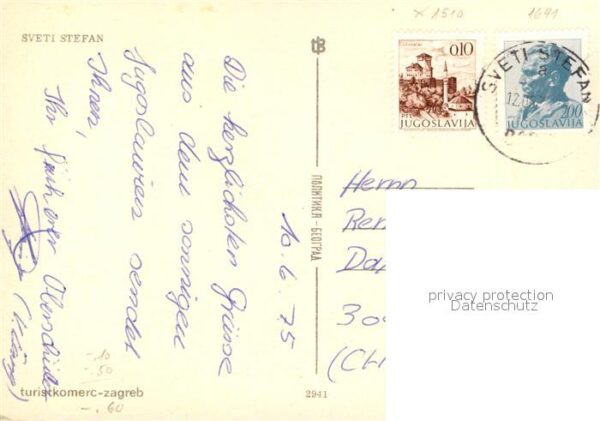 SVETI STEFAN
tB
x 1510
1641
0,10
JUGOSLAVIJA
SVETI STEFAN
12
2,00
JUGOSLAVIJA
10.6.75
Die herzlichsten Grüsse
aus dem sonnigen
Jugoslawien sendet
Ihnen,
Ihr früherer
ПОЛИТИКА - БЕОГРАД
Herrn
Ren
Da
30
(CH
privacy protection
Datenschutz
-.10
-.50
-.60
turistkomerc-zagreb
2941